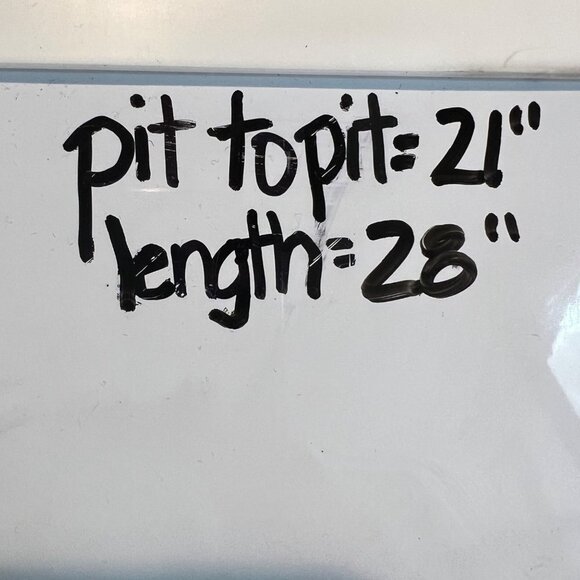 pit to pit= 21"
length= 28"